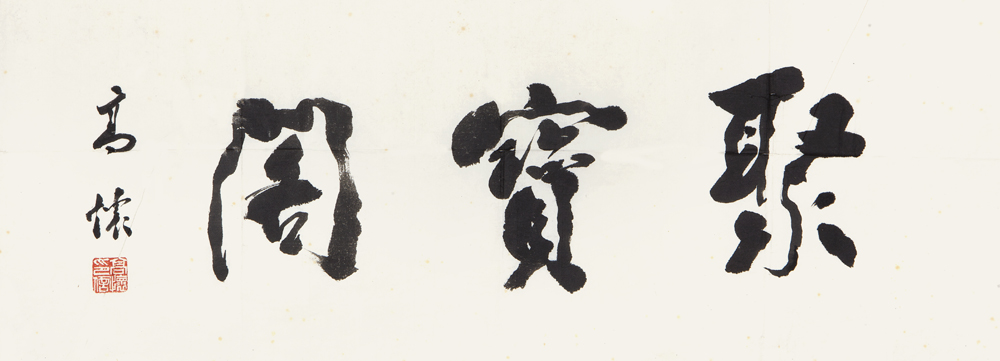 聚寶閣
高懐